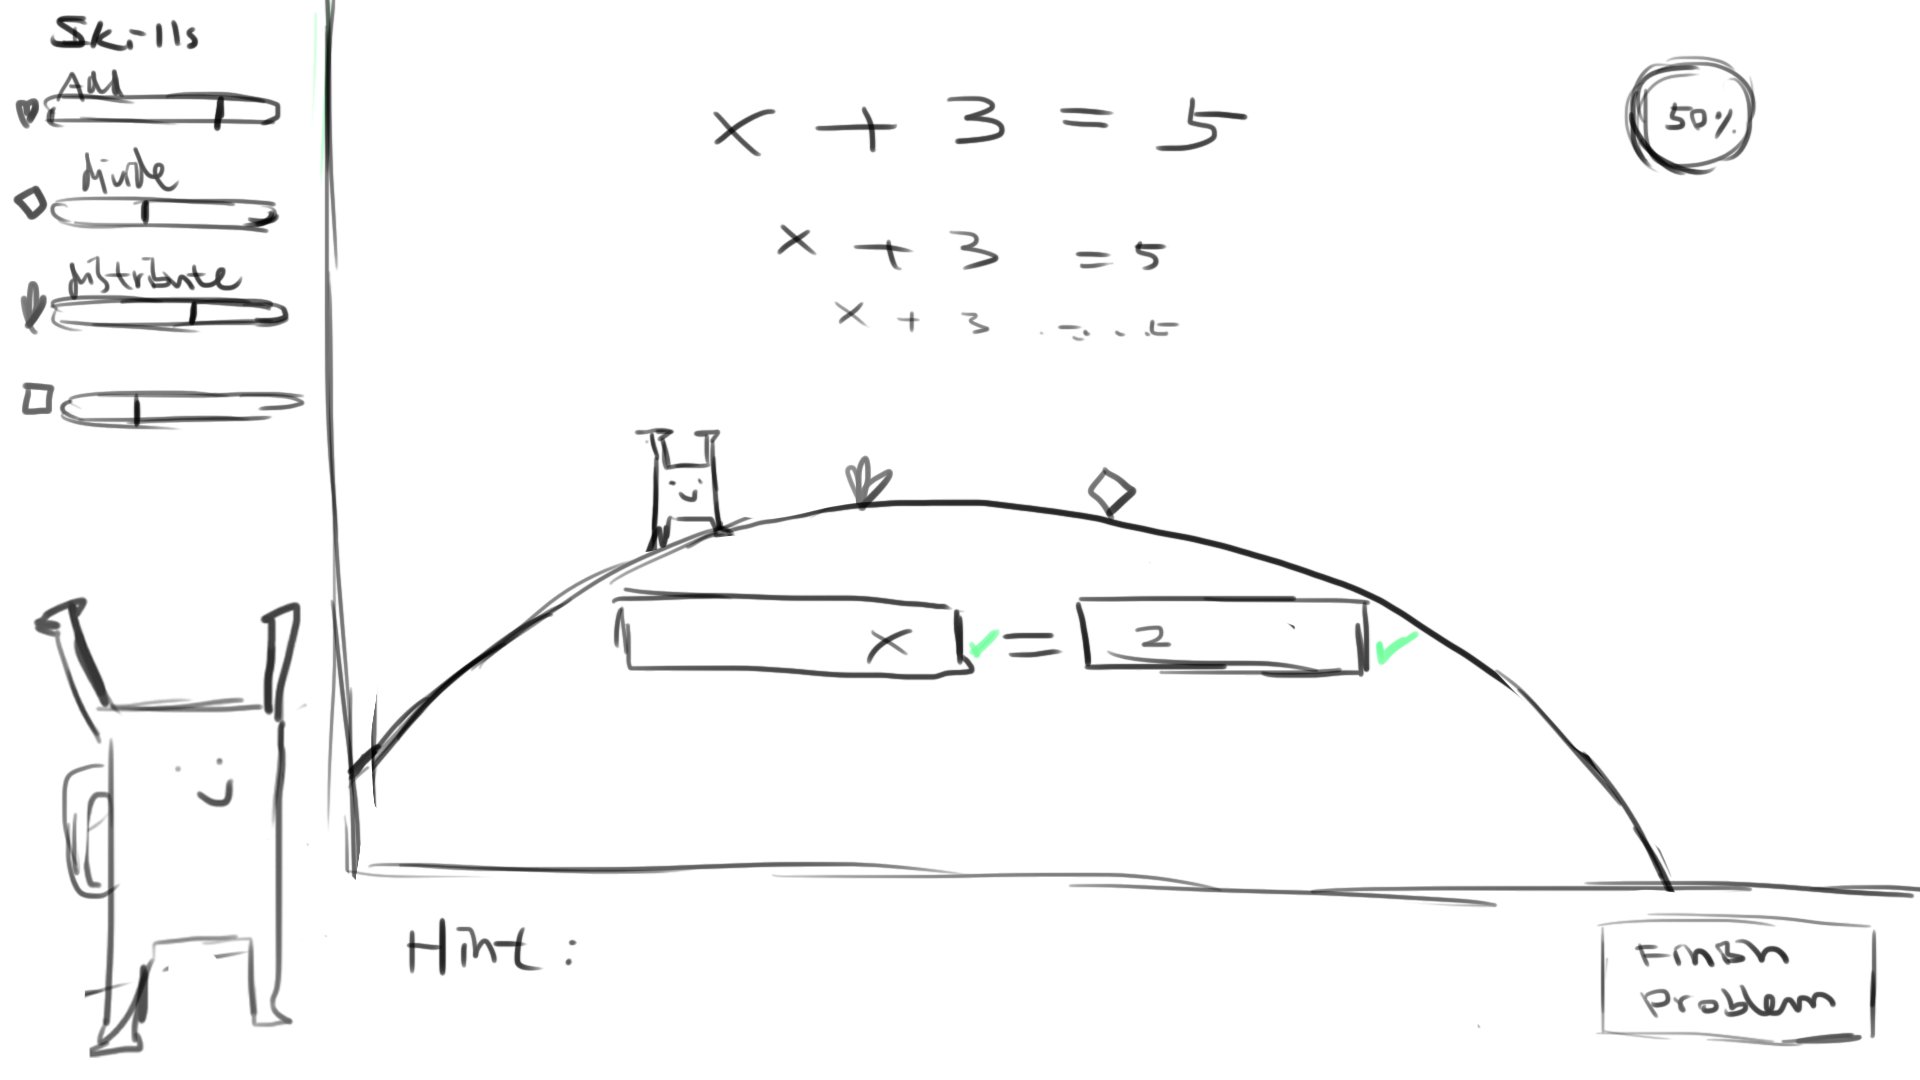 Skills
Add
divide
distribute
x + 3 = 5
50%
x + 3 = 5
x + 3 = 5
x = 2
Hint:
Finish
Problem